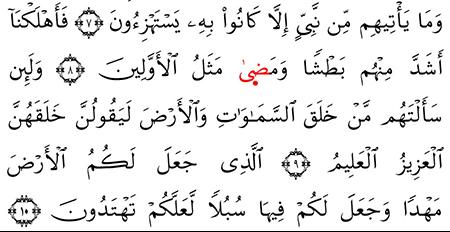 وَمَا يَأْتِيهِم مِّن نَّبِىٍّ إِلَّا كَانُوا۟ بِهِۦ يَسْتَهْزِءُونَ ٧ فَأَهْلَكْنَآ
أَشَدَّ مِنْهُم بَطْشًا وَمَضَىٰ مَثَلُ الْأَوَّلِينَ ٨ وَلَئِن
سَأَلْتَهُم مَّنْ خَلَقَ السَّمَـٰوَٰتِ وَالْأَرْضَ لَيَقُولُنَّ خَلَقَهُنَّ
الْعَزِيزُ الْعَلِيمُ ٩ الَّذِى جَعَلَ لَكُمُ الْأَرْضَ
مَهْدًا وَجَعَلَ لَكُمْ فِيهَا سُبُلًا لَّعَلَّكُمْ تَهْتَدُونَ ١٠